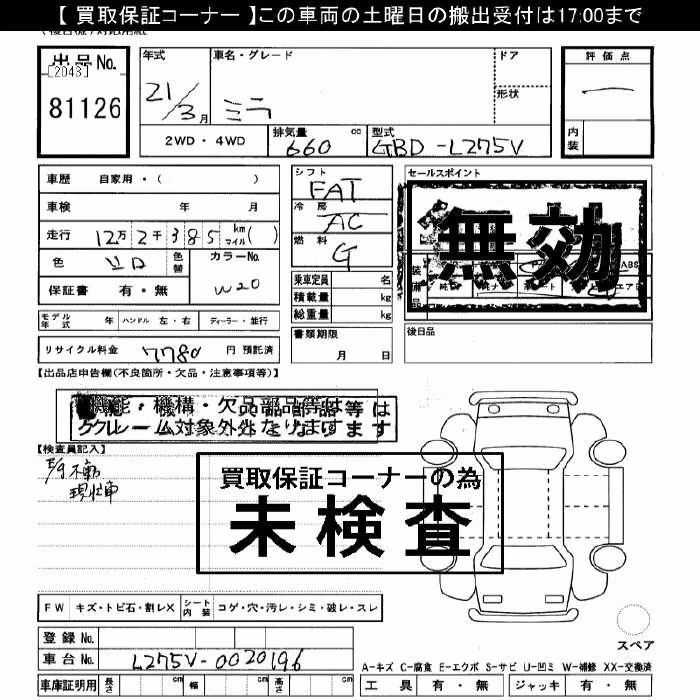 【 買取保証コーナー 】この車両の土曜日の搬出受付は17:00まで
出品No.
[2043]
81126
年式
21/3月
車名・グレード
ミラ
ドア
形状
評価点
内装
2WD・4WD
排気量 660 cc
型式 GBD-L275V
車歴 自家用・( )
車検 年 月
走行 12万2千385 km マイル( )
色 シロ 色替
カラーNo. W20
保証書 有・無
モデル年式 年 ハンドル 左・右 ディーラー・並行
リサイクル料金 7780 円 預託済
シフト FAT
冷房 AC
燃料 G
乗車定員 名
積載量 kg
総重量 kg
書類期限 月 日
セールスポイント
無効
後日品
【出品店申告欄(不良箇所・欠品・注意事項等)】
機能・機構・欠品部品等は
クレーム対象外となります
【検査員記入】
E/g不動
現状車
買取保証コーナーの為
未検査
FW キズ・トビ石・割レX シート内装 コゲ・穴・汚レ・シミ・破レ・スレ
登録No.
車台No. L275V-0020196
車庫証明用 長さ cm 幅 cm 高さ cm
スペア
A-キズ C-腐食 E-エクボ S-サビ U-凹ミ W-補修 XX-交換済
工具 有・無 ジャッキ 有・無